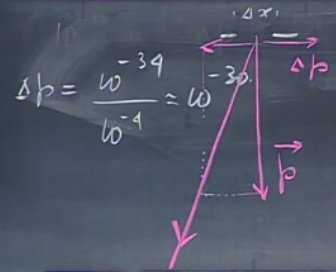 Δx
Δp = 10^-34 / 10^-4 = 10^-30
Δp
p⃗